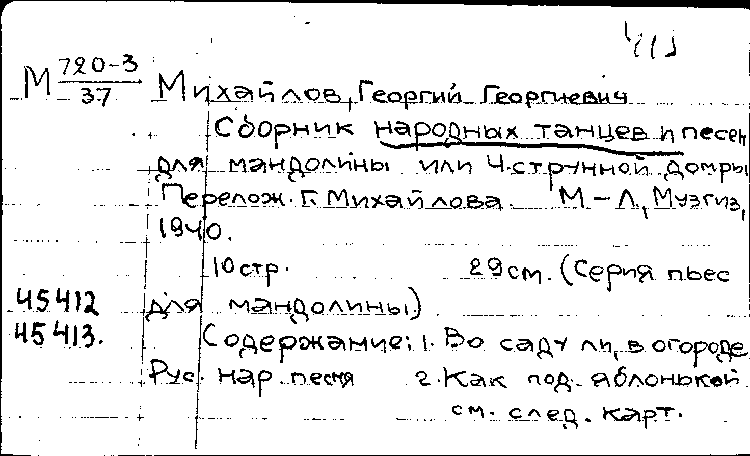 М 720-3
37
Михайлов, Георгий Георгиевич
Сборник народных танцев и песен
для мандолины или 4-струнной домры
Перелож. Г. Михайлова. М-Л, Музгиз,
1940.
10 стр. 29 см. (Серия пьес
45412 для мандолины)
45413. Содержание: 1. Во саду ли, в огороде
Рус. нар. песня 2. Как под яблонькой
см. след. карт.